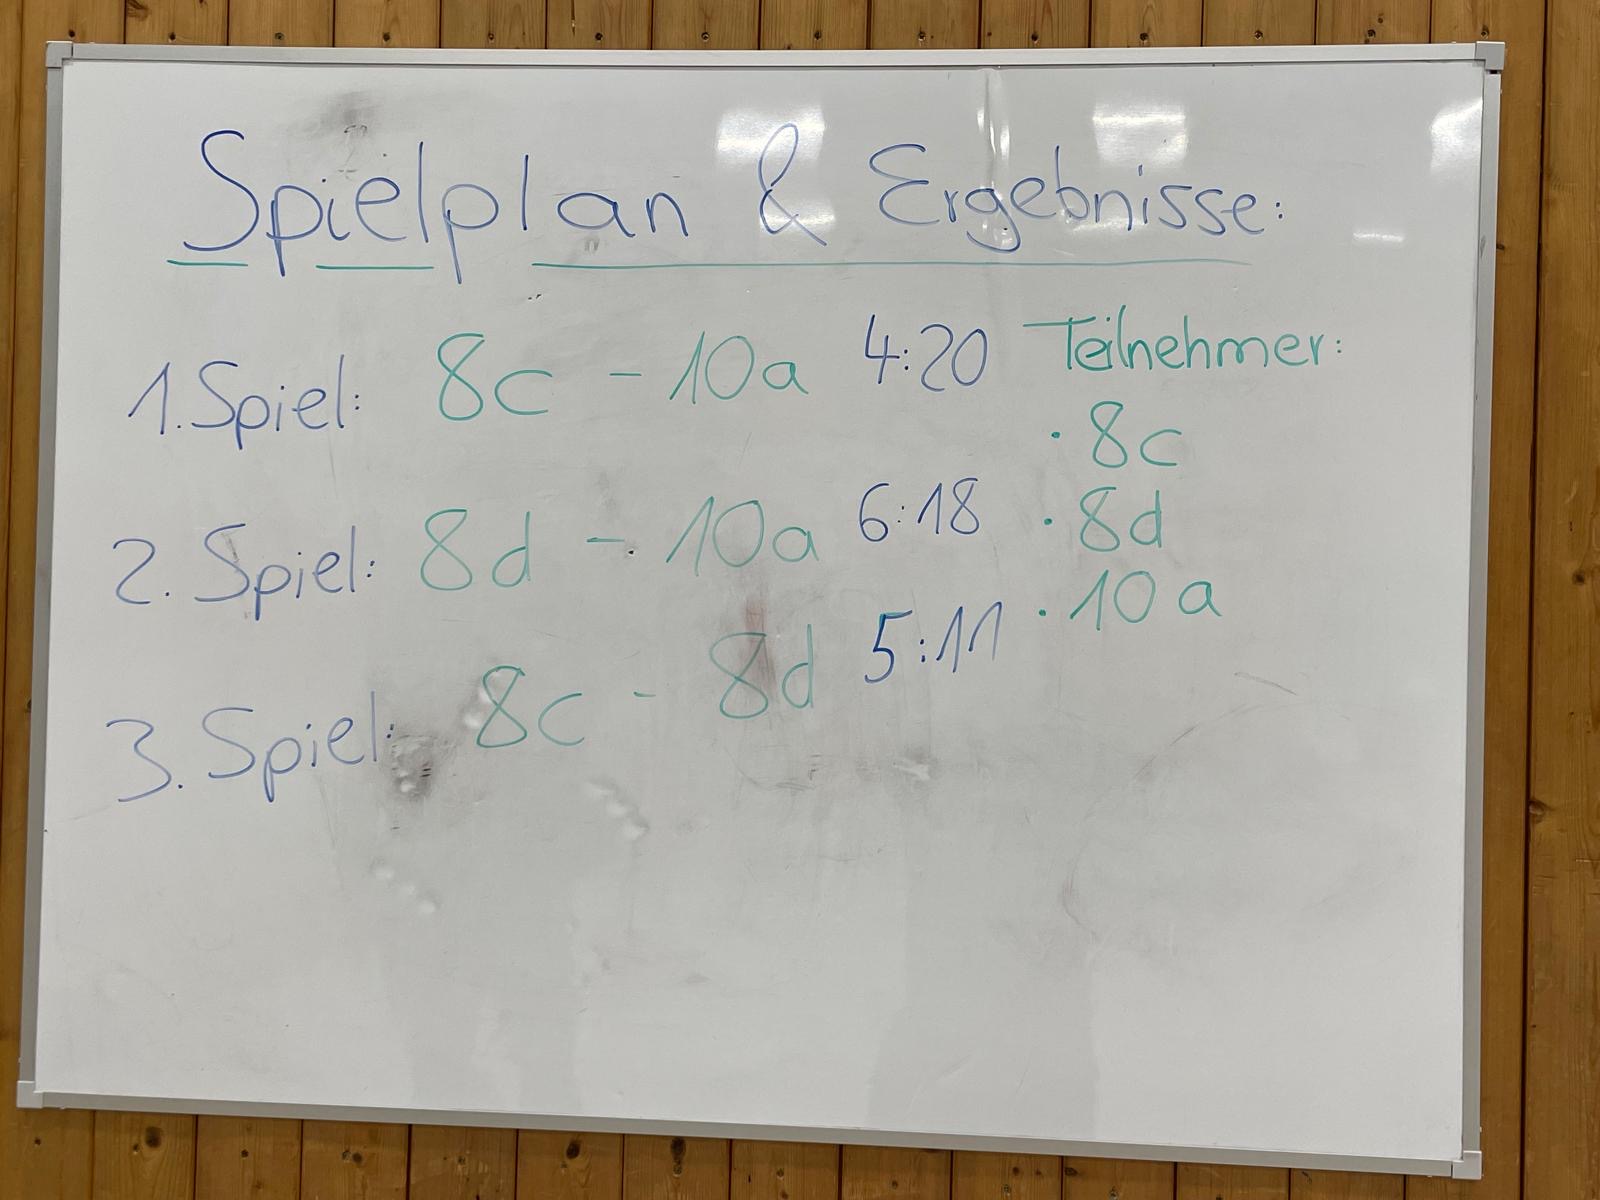 Spielplan & Ergebnisse:
1. Spiel: 8c - 10a 4:20
2. Spiel: 8d - 10a 6:18
3. Spiel: 8c - 8d 5:11
Teilnehmer:
· 8c
· 8d
· 10a